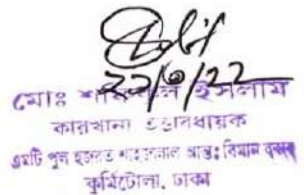 ২২/৩/২২
মোঃ ইসলাম
কারখানা তত্ত্বাবধায়ক
এমটি পুল হজরত শাহজালাল আন্তঃ বিমান বন্দর
কুর্মিটোলা, ঢাকা